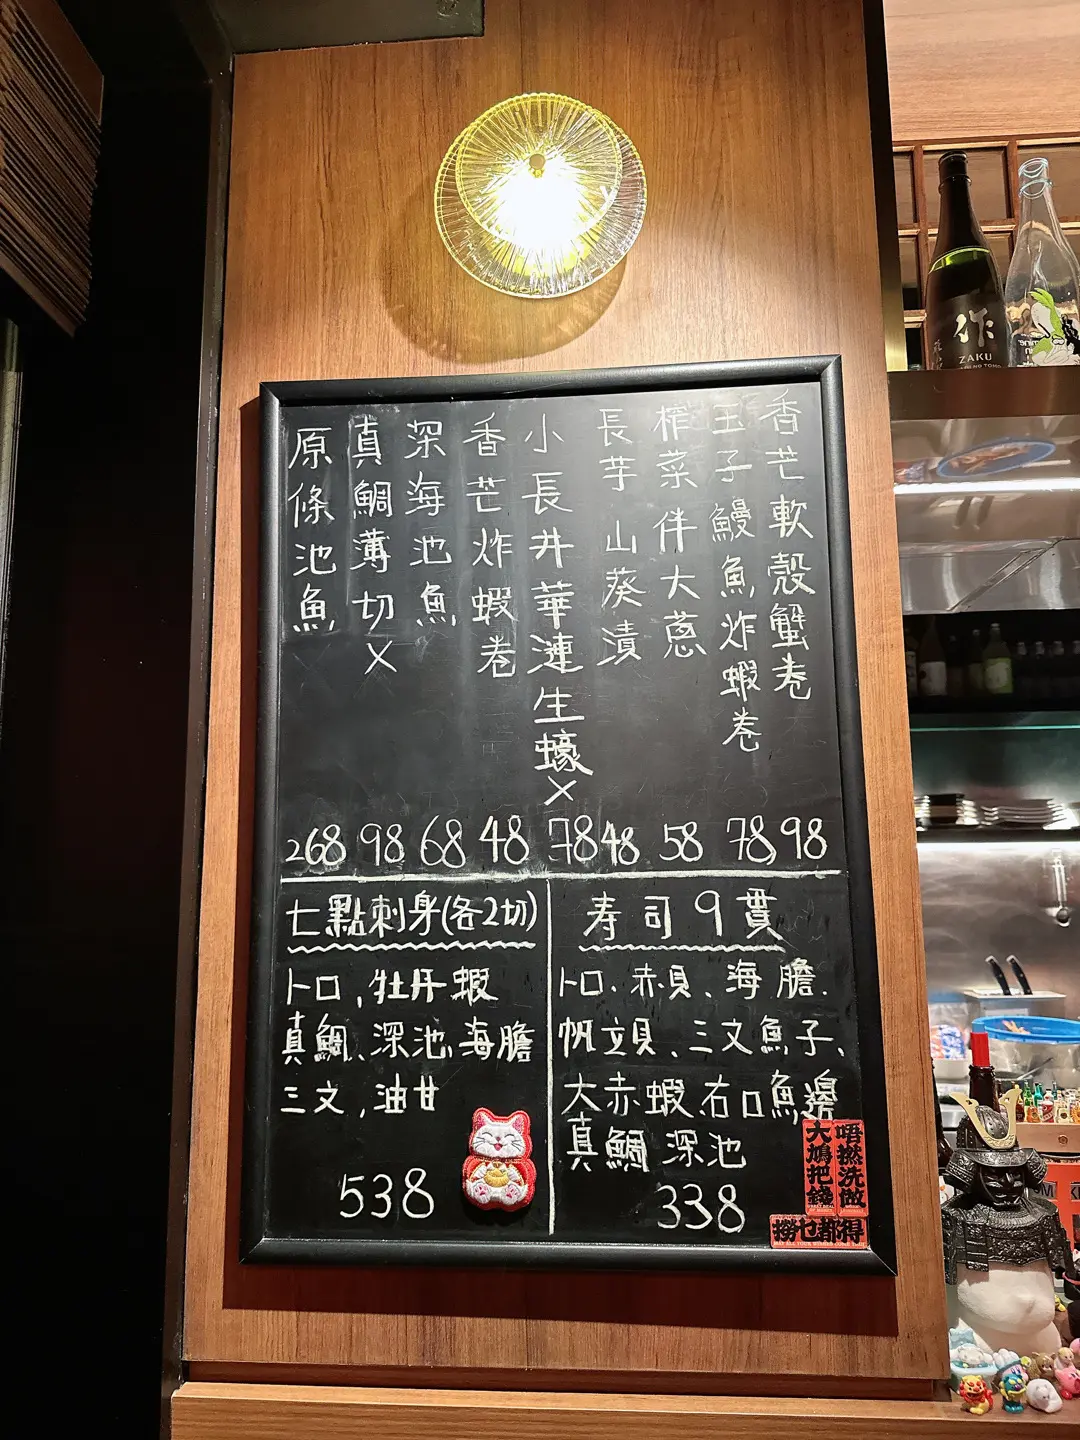 香芒軟殼蟹卷
玉子鰻魚炸蝦卷
榨菜伴大蔥
長芋山葵漬
小長井華漣生蠔×
香芒炸蝦卷
深海池魚
真鯛薄切×
原條池魚
268 98 68 48 78 48 58 78 98
七點刺身(各2切)
トロ,牡丹蝦
真鯛、深池、海膽
三文,油甘
538
寿司9貫
トロ、赤貝、海膽、
帆立貝、三文魚子、
大赤蝦、右口魚邊
真鯛 深池
338
唔撚洗做
大鳩把錢
撈乜都得
作
ZAKU